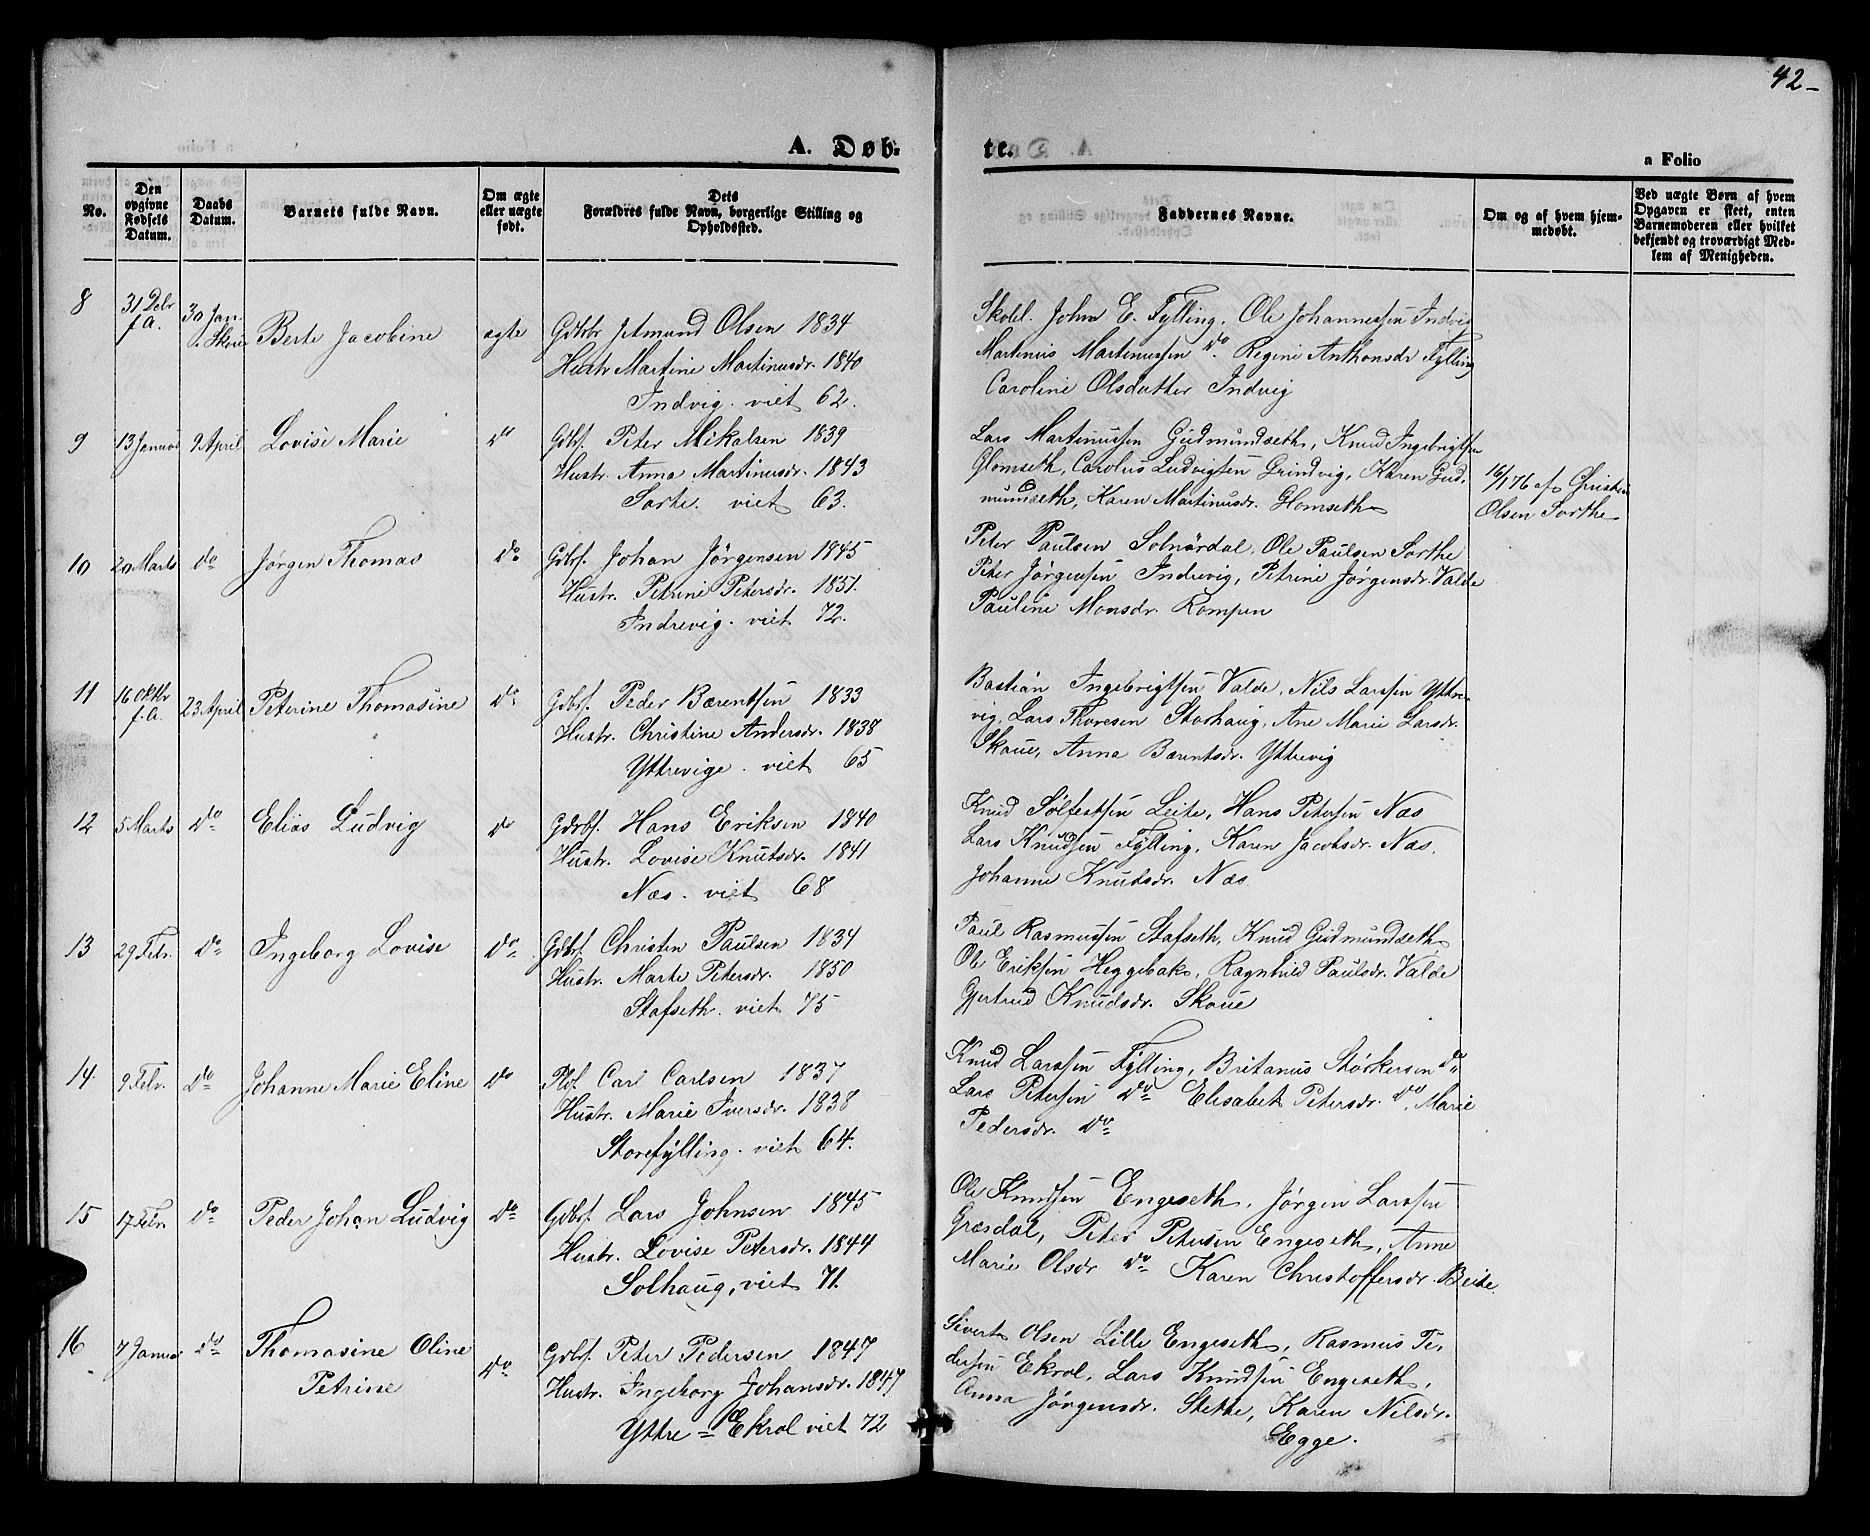 42-
A. Døb-
te.
a Folio
No.
Den opgivne Fødsels Datum.
Daabs Datum.
Barnets fulde Navn.
Om ægte eller uægte født.
Dets Forældres fulde Navn, borgerlige Stilling og Opholdssted.
Faddernes Navne.
Om og af hvem hjemmedøbt.
Ved uægte Børn af hvem Opgaven er skeet, enten Barnemoderen eller hvilket bekjendt og troværdigt Medlem af Menigheden.
8
31 Debr f.A.
30 Jan. Skoue
Berte Jacobine
ægte
Gdbr. Jetmund Olsen 1834
Hustr Martine Martinusdr. 1840
Indvig. viet 62.
Skoll. John E. Fylling, Ole Johannessen Indvig
Martinus Martinussen do. Regine Anthonsdr Fylling
Caroline Olsdatter Indvig
9
13 Januar
9 April
Lovise Marie
do
Gdbf. Peter Mikalsen 1839
Hustr. Anna Martinusdr. 1843
Sorte. viet 63.
Lars Martinussen Gudmundseth, Knud Ingebrigtsen
Glomseth, Carolus Ludvigsen Grindvig, Karen Gud-
mundseth, Karen Martinusdr. Glomseth
16/1 76 af Christen
Olsen Sorthe
10
20 Marts
do
Jørgen Thomas
do
Gdbf. Johan Jørgensen 1845
Hustr. Petrine Petersdr. 1851.
Indrevig. viet 72.
Peter Paulsen Solnørdal, Ole Paulsen Sorthe
Peter Jørgensen Indrevig, Petrine Jørgensdr. Valde
Pauline Monsdr. Rompen
11
16 Oktbr f.A.
23 April
Peterine Thomasine
do
Gdbf. Peder Bærentsen 1833
Hustr. Christine Andersdr. 1838
Yttrevige. viet 65
Bastian Ingebrigtsen Valde, Nils Larssen Yttre-
vig, Lars Thoresen Storhaug, Ane Marie Larsdr.
Skoue, Anna Bærentsdr. Yttrevig
12
5 Marts
do
Elias Ludvig
do
Gdrbf. Hans Eriksen 1840
Hustr. Lovise Knutsdr. 1841
Næs. viet 68
Knud Sølfestsen Leite, Hans Petersen Næs
Lars Knudsen Fylling, Karen Jacobsdr. Næs,
Johanne Knudsdr. Næs
13
29 Febr.
do
Ingeborg Lovise
do
Gdbf. Christen Paulsen 1834
Hustr. Marte Petersdr. 1850
Stafseth. viet 75
Paul Rasmussen Stafseth, Knud Gudmundseth
Ole Eriksen Heggebak, Ragnhild Paulsdr. Valde
Gjertrud Knudsdr. Skoue
14
9 Febr.
do
Johanne Marie Eline
do
Plf. Carl Carlsen 1837
Hustr. Marie Iversdr. 1838
Storefylling. viet 64.
Knud Larssen Fylling, Britanus Størkersen do
Lars Petersen do Elisabet Petersdr. do, Marie
Pedersdr. do
15
17 Febr.
do
Peder Johan Ludvig
do
Gdbf. Lars Johnsen 1845
Hustr. Lovise Petersdr. 1844
Solhaug, viet 71.
Ole Knudsen Engeseth, Jørgen Larssen
Græsdal, Peter Petersen Engeseth, Anne
Marie Olsdr do Karen Christoffersdr. Beite
16
7 Januar
do
Thomasine Oline
Petrine
do
Gdbf. Peter Pedersen 1847
Hustr. Ingeborg Johansdr. 1847
Yttre Ekrol viet 72
Sivert Olsen Lille Engeseth, Rasmus Pe-
dersen Ekrol, Lars Knudsen Engeseth,
Anna Jørgensdr. Stette, Karen Nilsdr.
Egge.